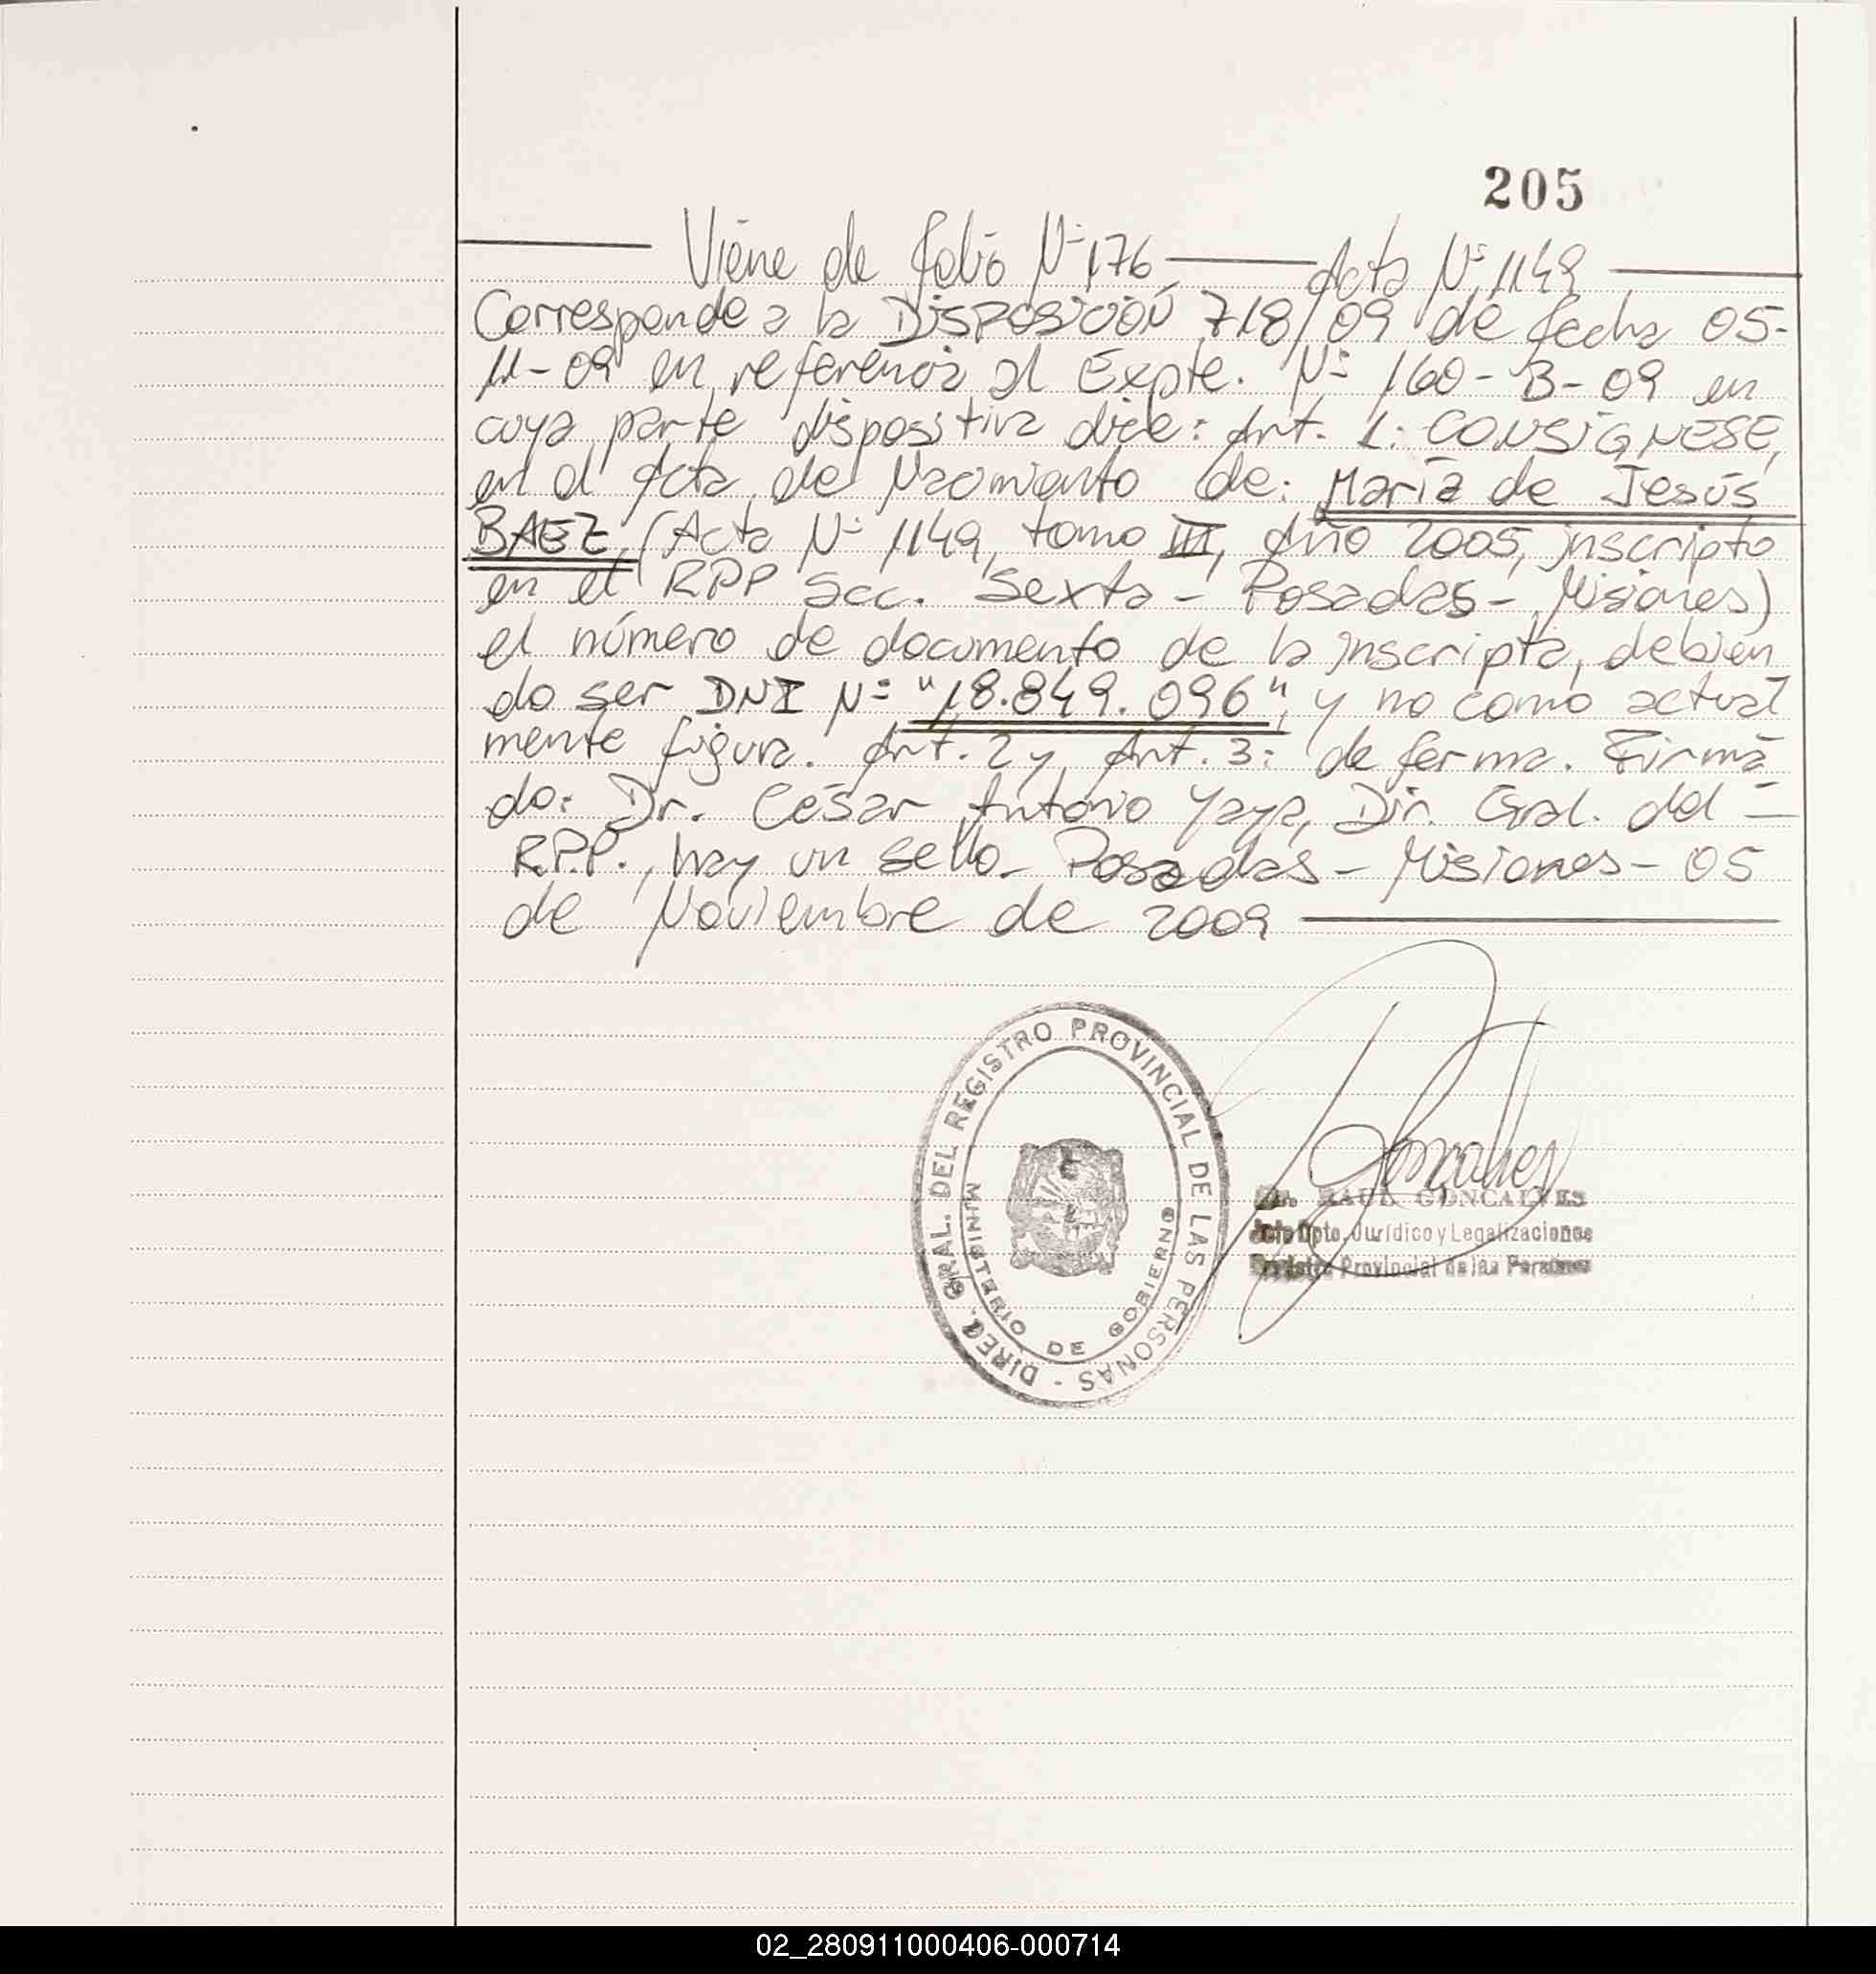 205
Viene de folio Nº 176 Acta Nº 1149
Corresponde a la DISPOSICIÓN 718/09 de fecha 05-
11-09 en referencia al Expte. Nº 160-B-09 en
cuya parte dispositiva dice: Art. 1: CONSIGNESE,
en el Acta de Nacimiento de: María de Jesús
BAEZ, (Acta Nº 1149, tomo III, Año 2005, inscripto
en el RPP Secc. Sexta - Posadas - Misiones)
el número de documento de la inscripta, debien
do ser DNI Nº "18.849.096", y no como actual
mente figura. Art. 2 y Art. 3: de forma. Firma
do: Dr. César Antonio Yaya, Dir. Gral. del -
R.P.P., hay un sello - Posadas - Misiones - 05
de Noviembre de 2009
DIREC. GRAL. DEL REGISTRO PROVINCIAL DE LAS PERSONAS -
MINISTERIO DE GOBIERNO
Goncalves
RAUL GONCALVES
Jefe Dpto. Jurídico y Legalizaciones
Registro Provincial de las Personas
02_280911000406-000714